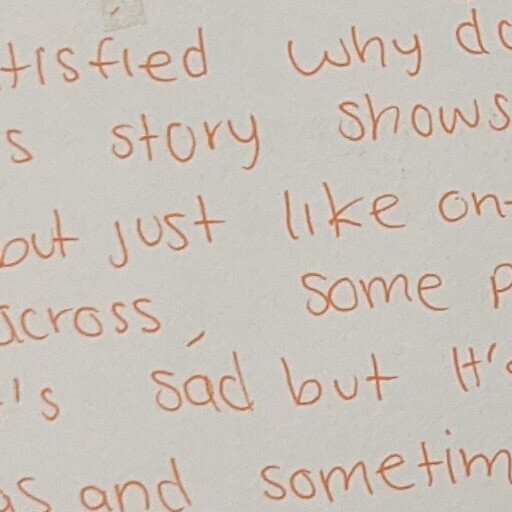 tisfied why do
s story shows
out just like on
across, some p
's sad but It's
as and sometim